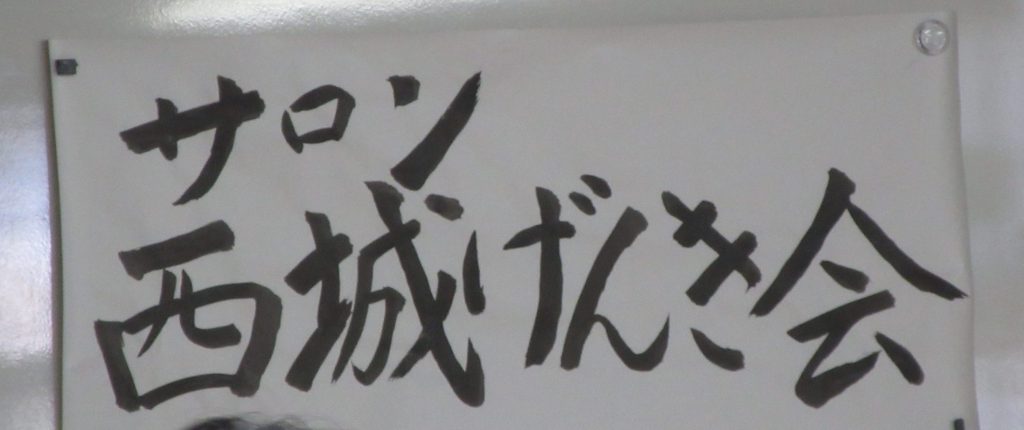 サロン
西城げんき会